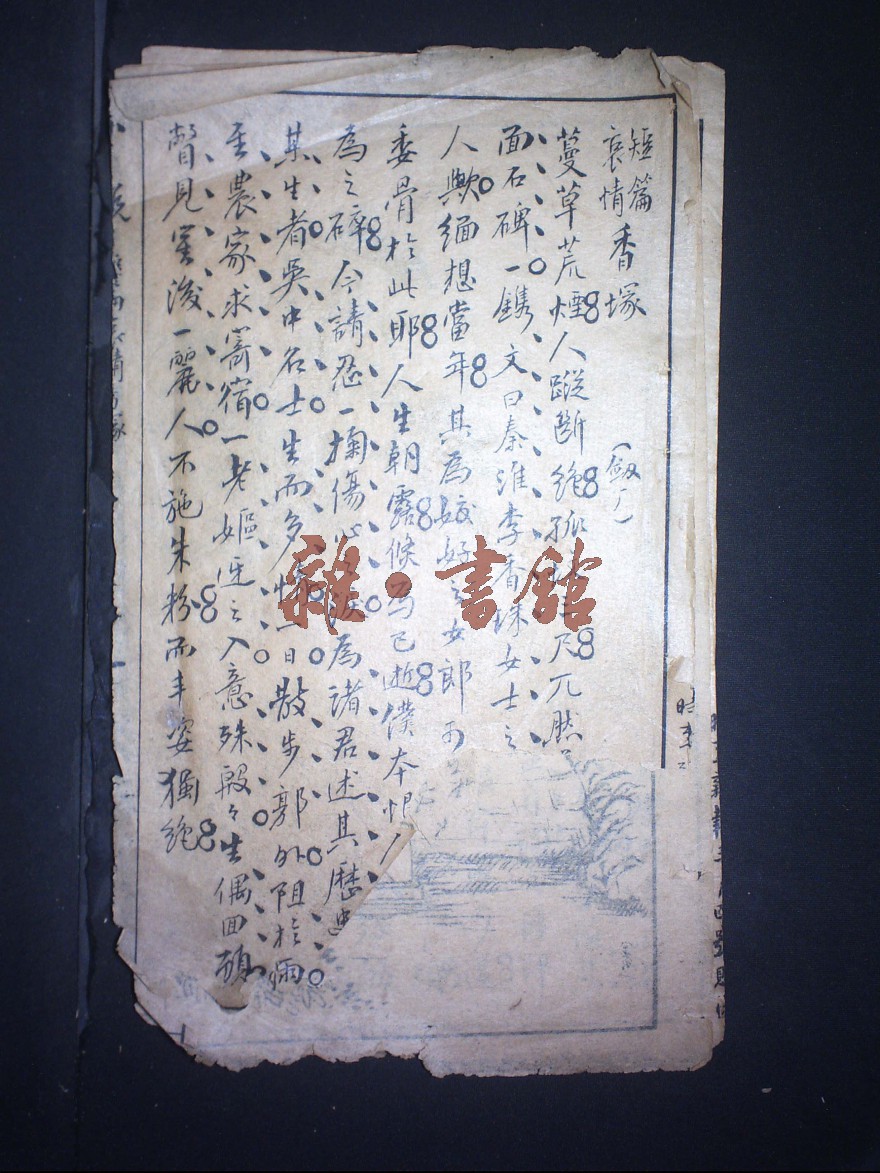 短篇哀情 香塚
（劔）
蔓草荒煙人蹤斷絶孤尺兀然
面石碑一鐫文曰秦淮李香珠女士之
人歟緬想當年其為姣好之女郎
委骨於此耶人生朝露倏焉已逝僕本恨人
為之碎今請忍一掬傷心之淚為諸君述其歷史
某生者吳中名士生而多情一日散步郭外阻於雨
至農家求寄宿一老嫗迓之入意殊殷々生偶回頭
瞥見室後一麗人不施朱粉而丰姿獨絶
雜·書館